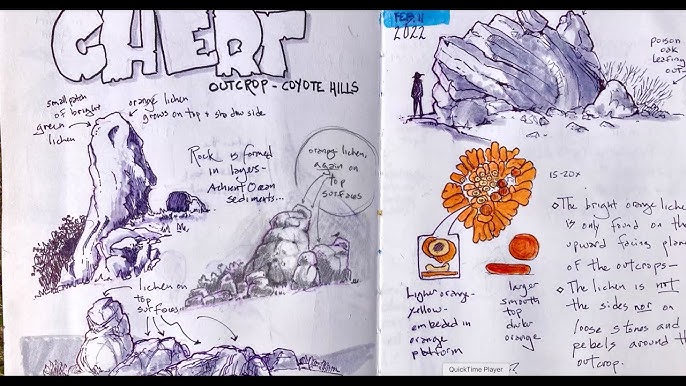 CHERT
OUTCROP - COYOTE HILLS
small patch
of bright
green
lichen
orange lichen
grows on top & shadow side
Rock is formed
in layers-
Achient Ocean
sediments...
orange lichen,
again on
top
surfaces
lichen on
top
surfaces
FEB. 11
2022
poison
oak
leafing
out
15-20x
The bright orange lichen
is only found on the
upward facing plane
of the outcrops-
The lichen is not
the sides nor on
loose stones and
pebels around the
outcrop.
higher orange-
yellow-
embeded in
orange
platform
larger
smooth
top
darker
orange
QuickTime Player